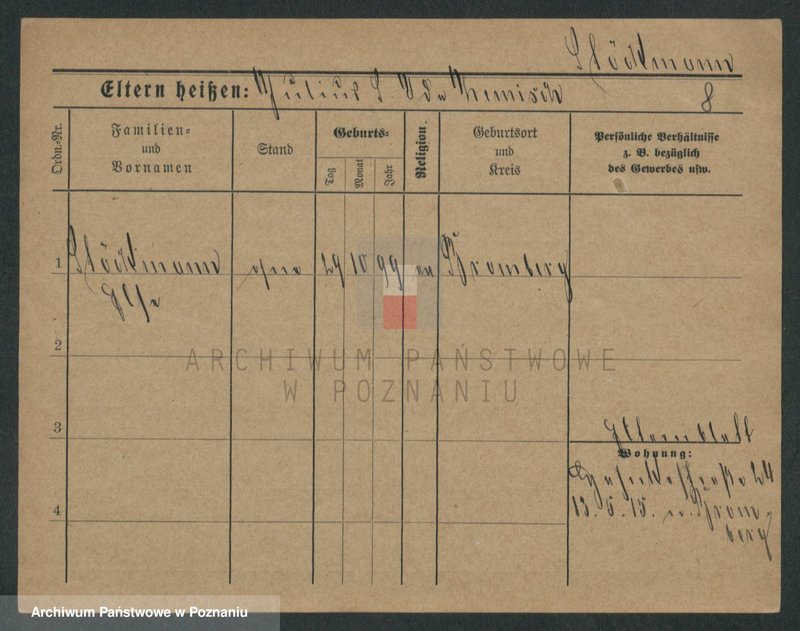 Stöckmann
Eltern heißen: Julius S. Ida
8
Ordn.-Nr.
Familien-
und
Vornamen
Stand
Geburts-
Tag
Monat
Jahr
Religion.
Geburtsort
und
Kreis
Persönliche Verhältnisse
z. B. bezüglich
des Gewerbes usw.
1 Stöckmann ohne 29 10 99 ev Bromberg
Else
2
ARCHIWUM PAŃSTWOWE
W POZNANIU
3
Elternblatt
Wohnung:
24
13. 5. 15. n. Brom-
berg
4
Archiwum Państwowe w Poznaniu